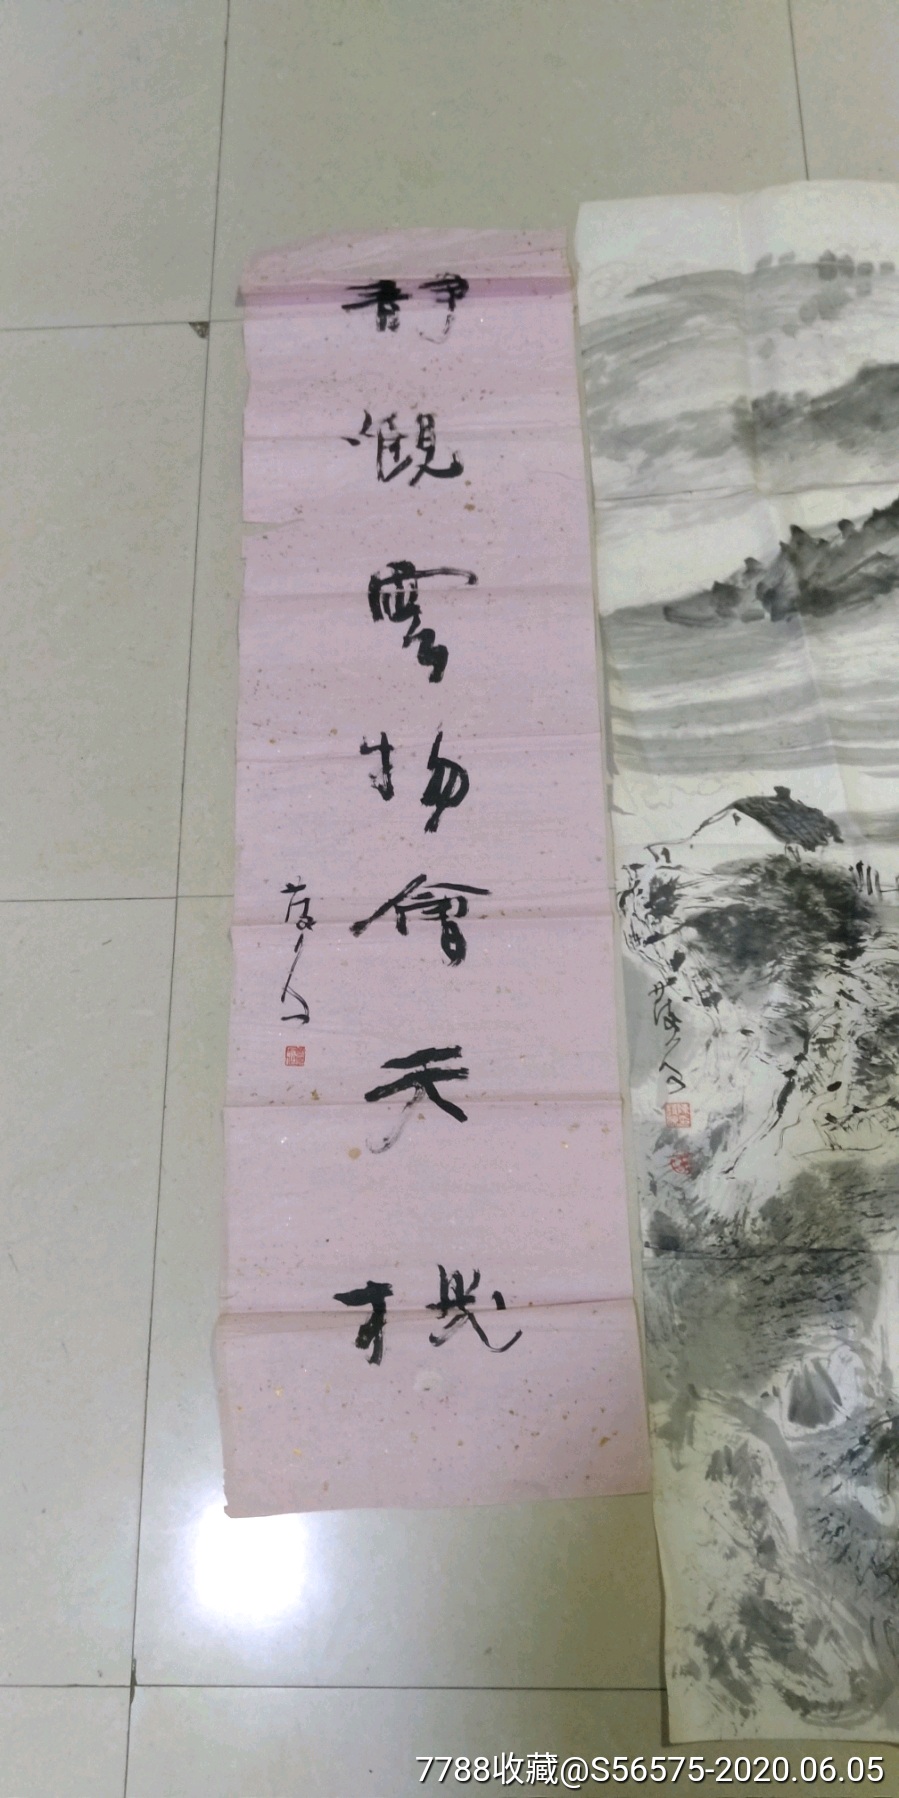 靜觀雲物會天機
7788收藏@S56575-2020.06.05